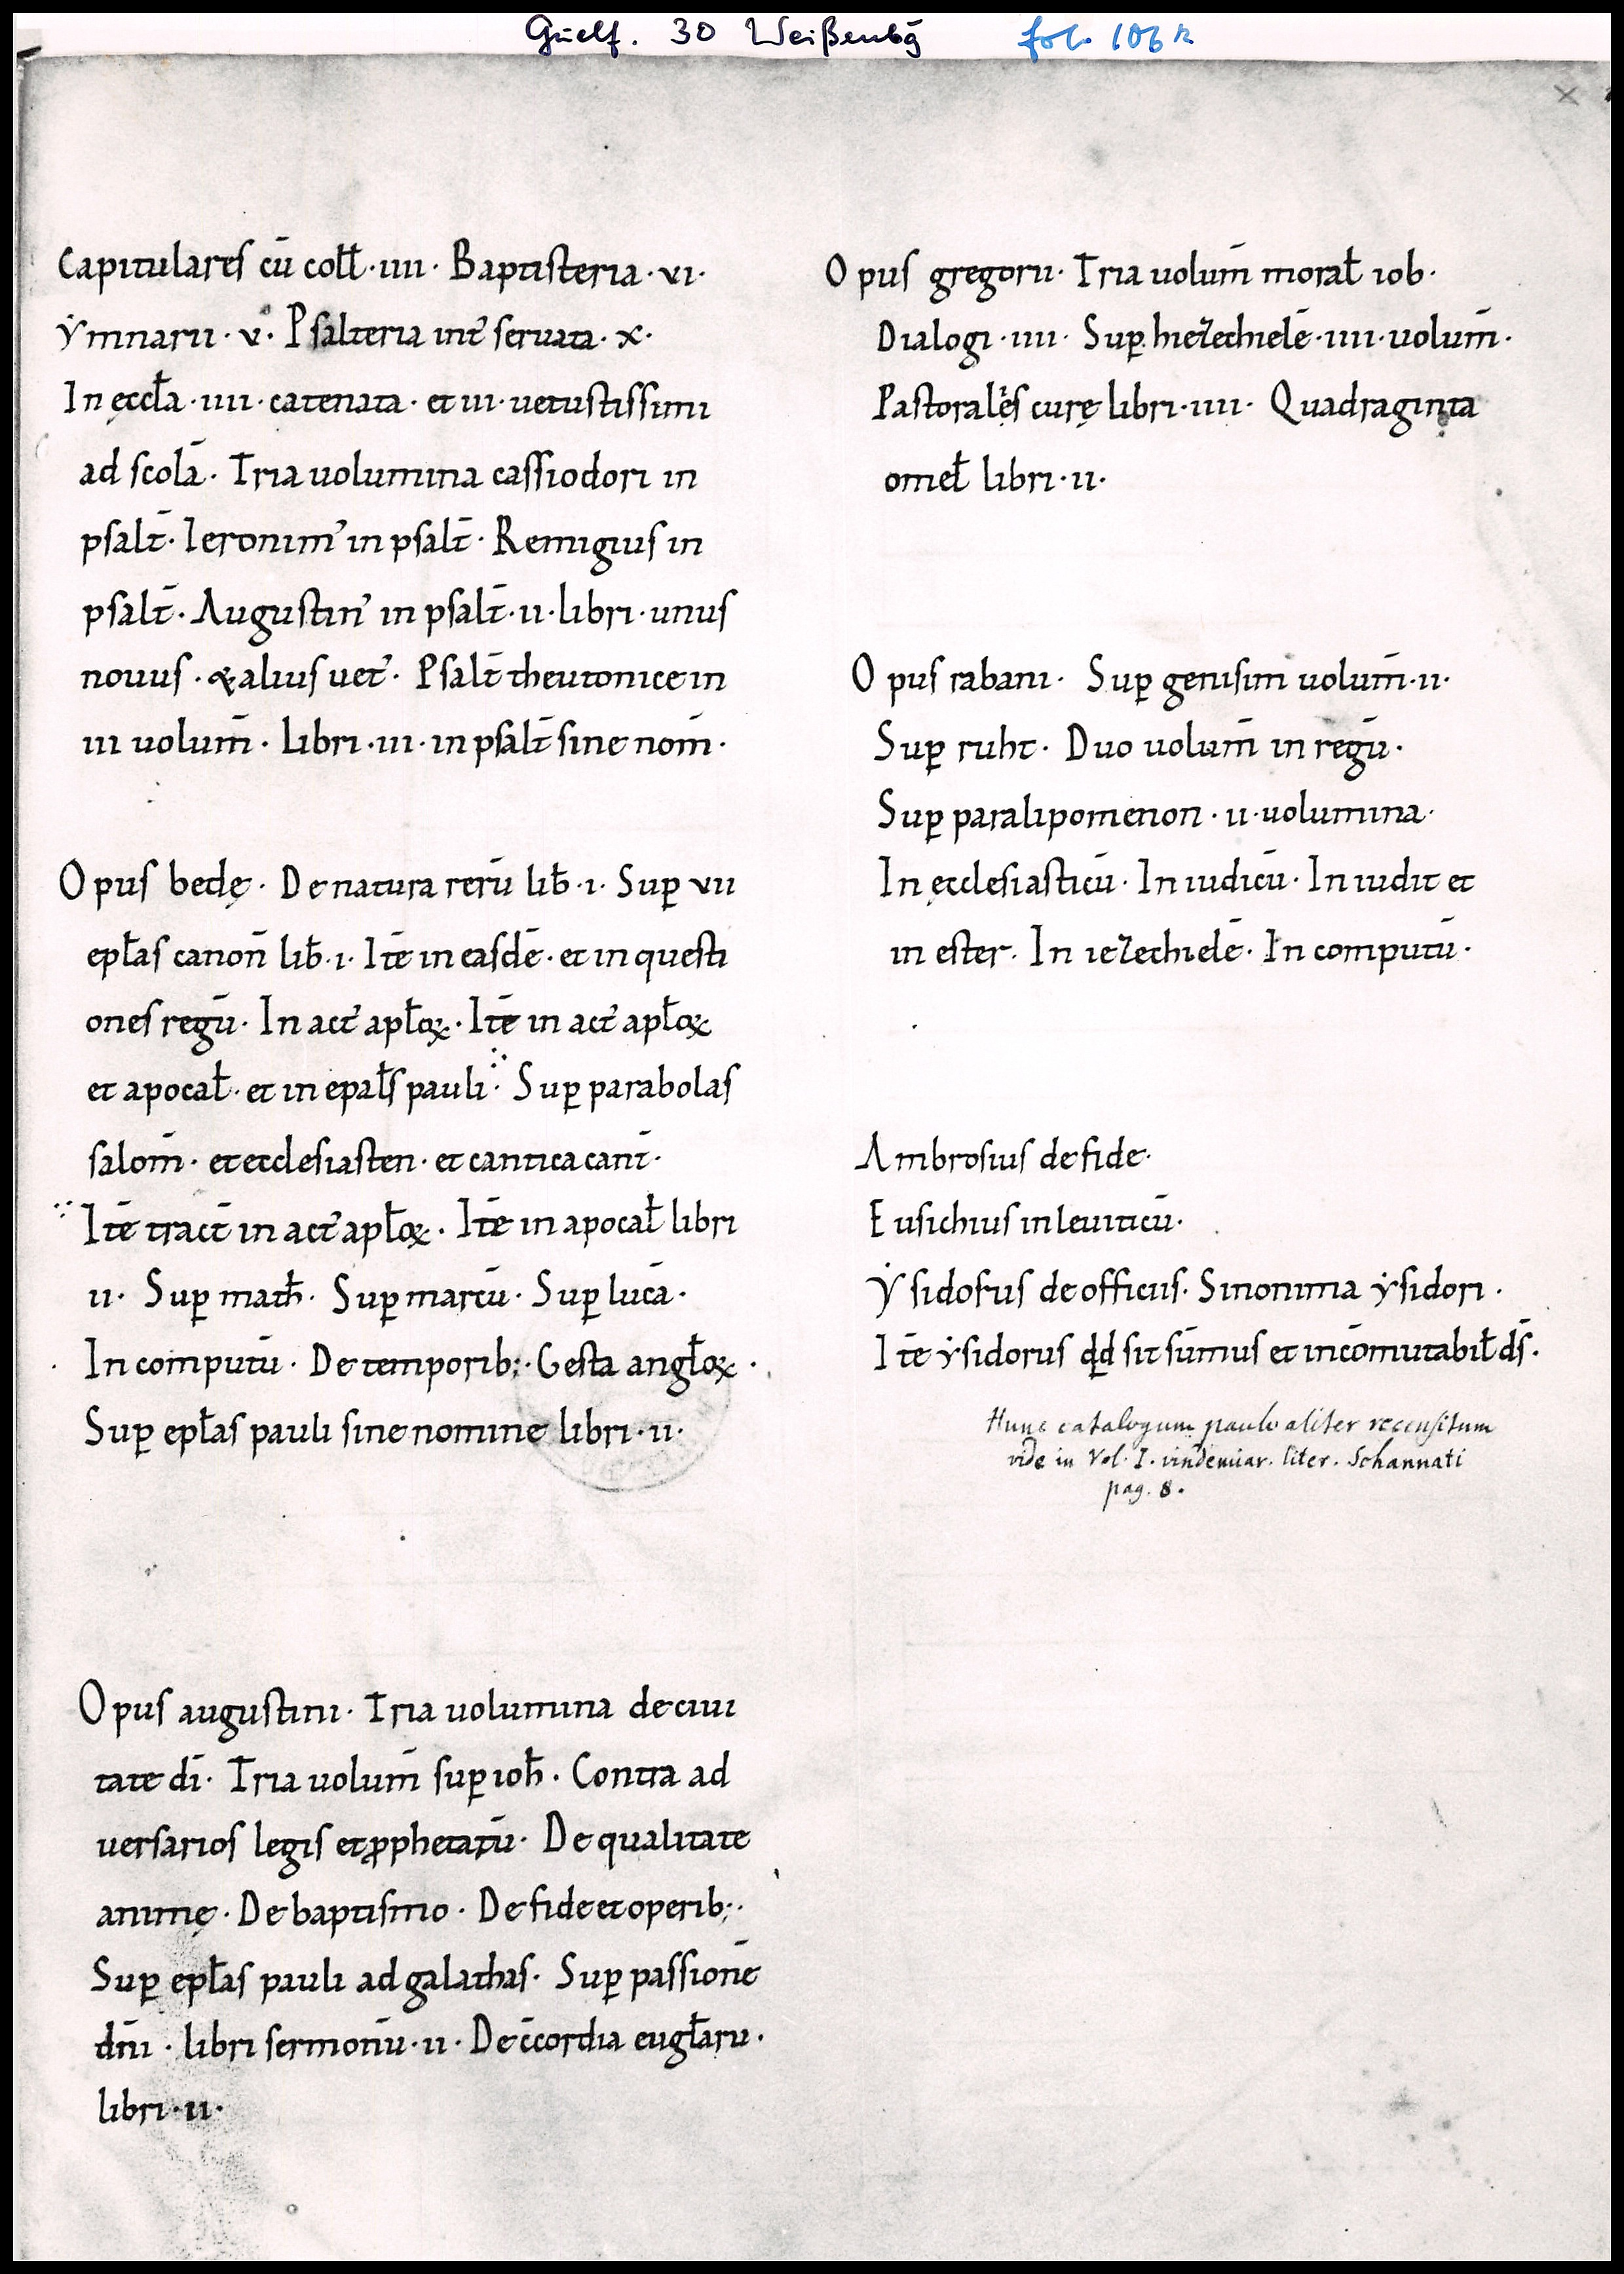 Guelf. 30 Weißenbg fol. 106 r
Capitulares cū coll̄·iiii· Baptisteria·vi·
Ẏmnarii·v· Psalteria int̕ seruata·x·
In ęccl̄a·iiii·catenata· et iii·uetustissimi
ad scolā· Tria uolumina cassiodori in
psalt̄· Ieronim̕ in psalt̄· Remigius in
psalt̄· Augustin̕ in psalt̄·ii·libri·unus
nouus·&alius uet̕· Psalt̄ theutonice in
iii uolum̄· Libri·iii·in psalt̄ sine nom̄·
Opus bedę· De natura rerū lib̄·i· Suꝑ vii
epl̄as canon̄ lib̄·i· Itē in easdē·et in questi
ones regū· In act̕ apl̄oꝝ· Itē in act̕ apl̄oꝝ
et apocal̄·et in epal̄s pauli·̈ Suꝑ parabolas
salom̄· et ecclesiasten· et cantica cant̄·
Itē tract̄ in act̕ apl̄oꝝ· Itē in apocal̄ libri
ii· Suꝑ math̄· Suꝑ marcū· Suꝑ lucā·
In computū· De temporib;· Gesta angl̄oꝝ·
Suꝑ epl̄as pauli sine nomine libri·ii·
Opus augustini· Tria uolumina de ciui
tate dī· Tria uolum̄ suꝑ ioh̄· Contra ad
uersarios legis et ꝓphetarū· De qualitate
animę· De baptismo· De fide et operib;·
Suꝑ epl̄as pauli ad galathas· Suꝑ passionē
dn̄i· libri sermonū·ii· De c̄cordia eugl̄aru·
libri·ii·
Opus gregorii· Tria uolum̄ moral̄ iob·
Dialogi·iiii· Suꝑ hiezechielē·iiii·uolum̄·
Pastorales curę libri·iiii· Quadraginta
omel̄ libri·ii·
Opus rabani· Suꝑ genisim uolum̄·ii·
Suꝑ ruht· Duo uolum̄ in regū·
Suꝑ paralipomenon·ii·uolumina·
In ęcclesiasticū· In iudicū· In iudit et
in ester· In iezechielē· In computū·
Ambrosius de fide·
Eusichius in leuiticū·
Ẏsidorus de officiis· Sinonima ẏsidori·
Itē ẏsidorus qd̄ sit sūmus et incōmutabil̄ ds̄·
Hunc catalogum paulo aliter recensitum
vide in Vol. I. vindemiar. liter. Schannati
pag. 8.